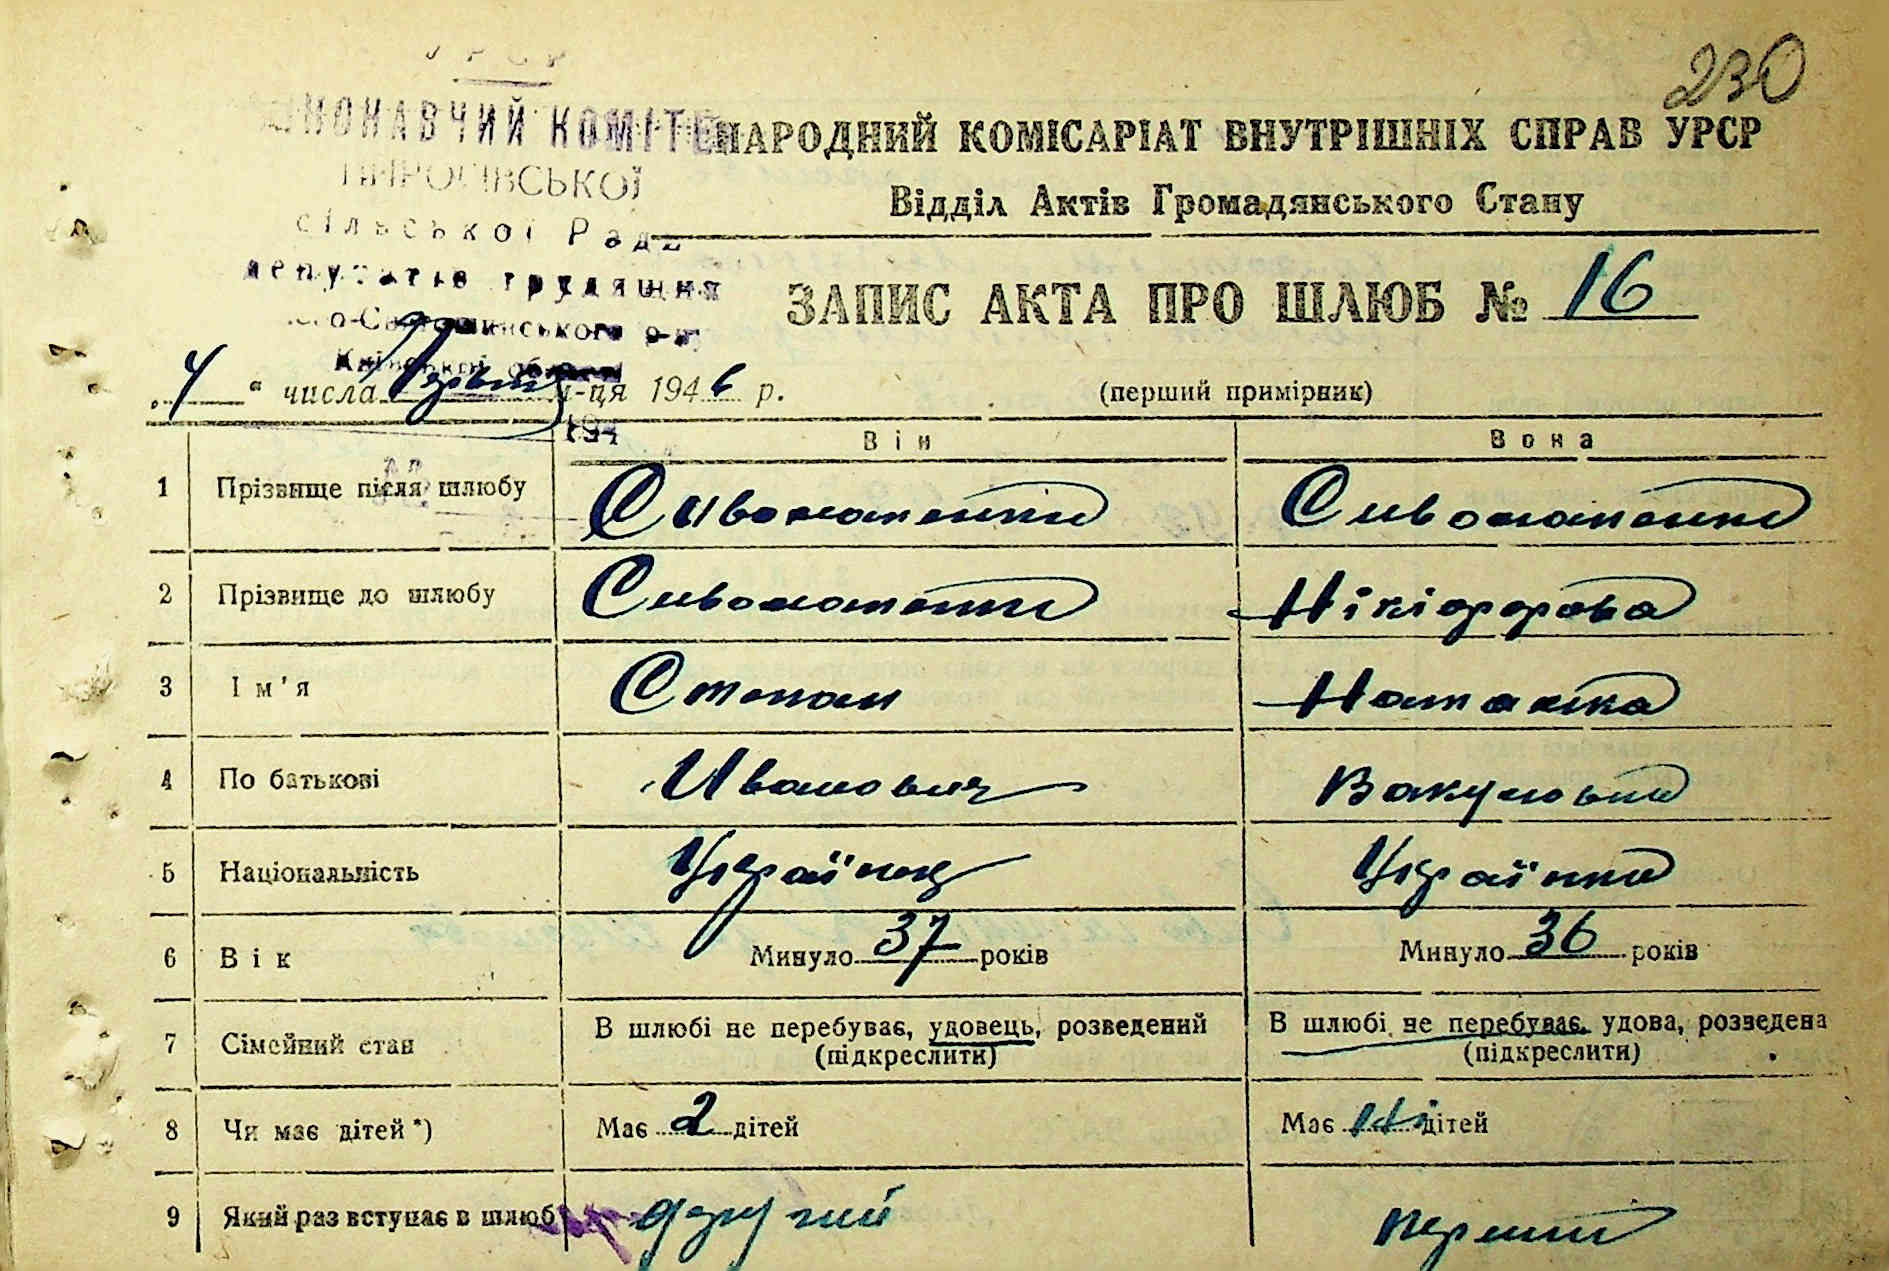 230
УРСР
ВИКОНАВЧИЙ КОМІТЕТ
ПИРОГІВСЬКОЇ
сільської Ради
депутатів трудящих
Києво-Святошинського р-ну
Київської області
194
НАРОДНИЙ КОМІСАРІАТ ВНУТРІШНІХ СПРАВ УРСР
Відділ Актів Громадянського Стану
ЗАПИС АКТА ПРО ШЛЮБ № 16
„4“ числа м-ця 1946 р. (перший примірник)
Він Вона
1 Прізвище після шлюбу Сивокатенко Сивокатенко
2 Прізвище до шлюбу Сивокатенко Нікіфорова
3 Ім'я Степан Наталка
4 По батькові Иванович Вакуловна
5 Національність Українец Українка
6 Вік Минуло 37 років Минуло 36 років
7 Сімейний стан В шлюбі не перебуває, удовець, розведений (підкреслити) В шлюбі не перебуває, удова, розведена (підкреслити)
8 Чи має дітей*) Має 2 дітей Має Ні дітей
9 Який раз вступає в шлюб другий перший